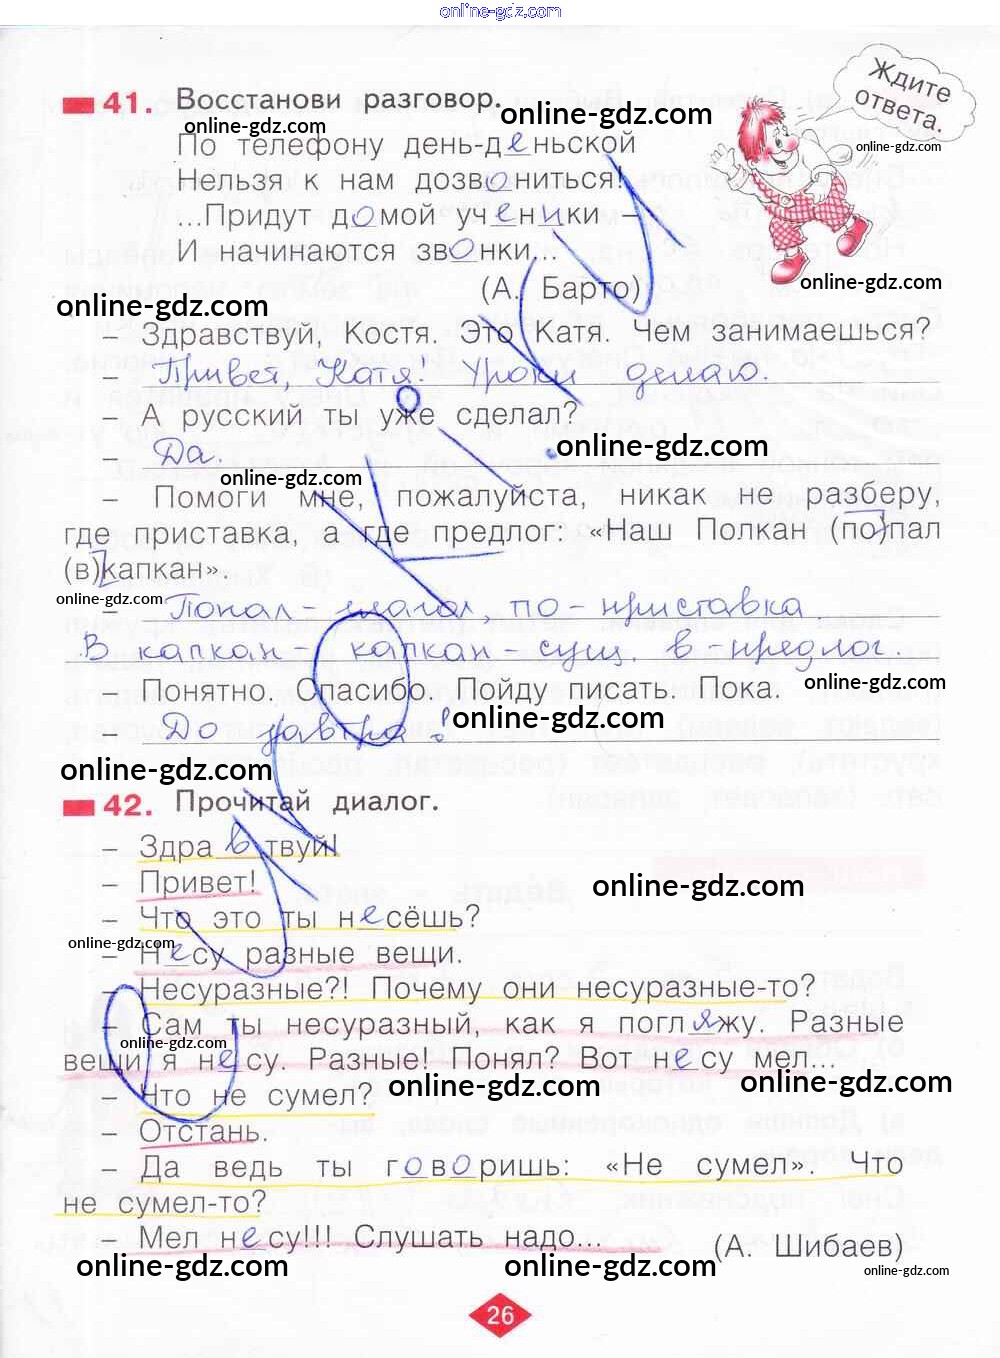 online-gdz.com
41. Восстанови разговор.
Ждите ответа.
online-gdz.com
online-gdz.com
online-gdz.com
По телефону день-деньской
Нельзя к нам дозвониться!
...Придут домой ученики –
И начинаются звонки...
online-gdz.com
(А. Барто)
online-gdz.com
– Здравствуй, Костя. Это Катя. Чем занимаешься?
– Привет, Катя. Уроки делаю.
– А русский ты уже сделал?
online-gdz.com
– Да.
online-gdz.com
– Помоги мне, пожалуйста, никак не разберу,
где приставка, а где предлог: «Наш Полкан (по)пал
(в)капкан».
online-gdz.com
– Попал – глагол, по – приставка
В капкан – капкан – сущ. в – предлог
Понятно. Спасибо. Пойду писать. Пока.
online-gdz.com
online-gdz.com
До завтра!
online-gdz.com
42. Прочитай диалог.
– Здравствуй!
– Привет!
online-gdz.com
– Что это ты несёшь?
online-gdz.com
– Несу разные вещи.
– Несуразные?! Почему они несуразные-то?
– Сам ты несуразный, как я погляжу. Разные
online-gdz.com
вещи я несу. Разные! Понял? Вот несу мел...
online-gdz.com
online-gdz.com
– Что не сумел?
– Отстань.
– Да ведь ты говоришь: «Не сумел». Что
не сумел-то?
Мел несу!!! Слушать надо...
(А. Шибаев)
online-gdz.com
online-gdz.com
online-gdz.com
26